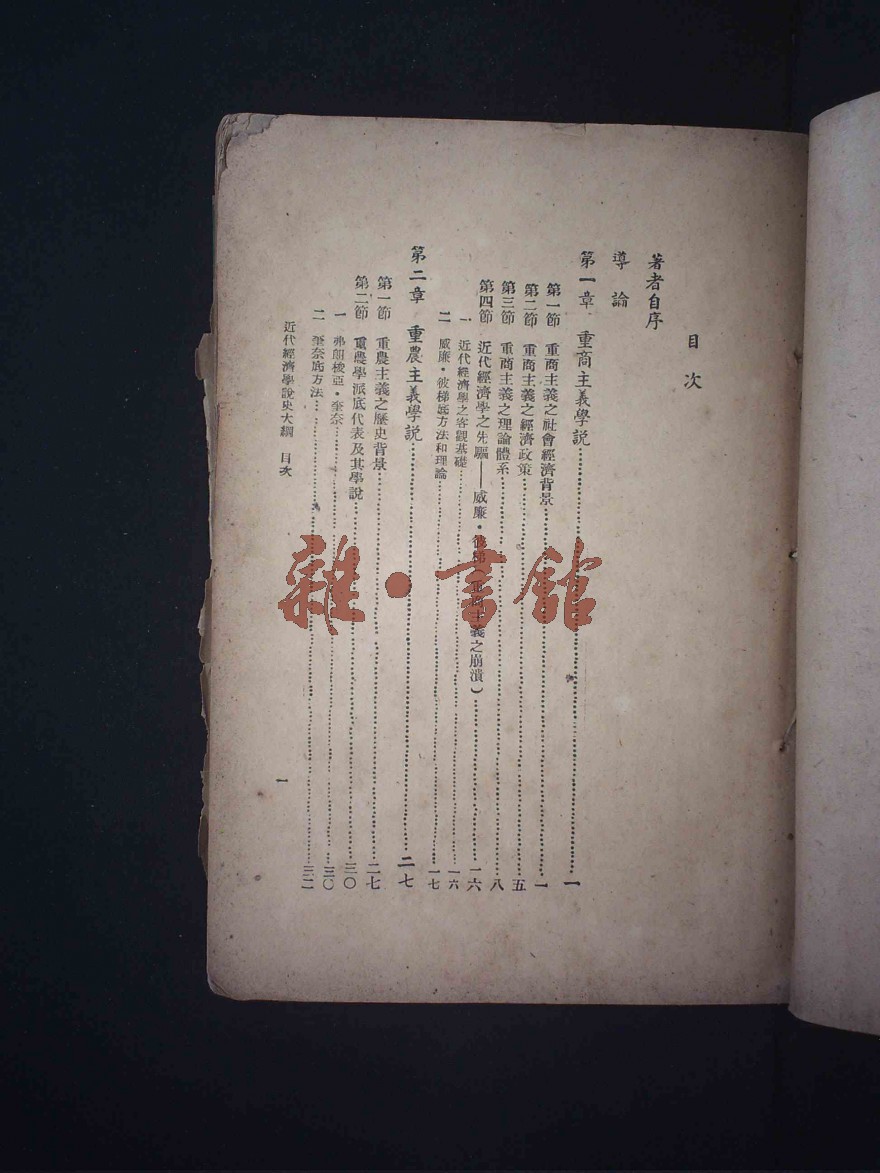 目次
著者自序
導論
第一章 重商主義學説……一
第一節 重商主義之社會經濟背景……一
第二節 重商主義之經濟政策……五
第三節 重商主義之理論體系……八
第四節 近代經濟學之先驅——威廉・彼梯（重商主義之崩潰）……一六
一 近代經濟學之客觀基礎……一六
二 威廉・彼梯底方法和理論……一七
第二章 重農主義學説……二七
第一節 重農主義之歷史背景……二七
第二節 重農學派底代表及其學說……三〇
一 弗朗梭亞・奎奈……三〇
二 奎奈底方法……三二
近代經濟學說史大綱 目次
一
雜・書館